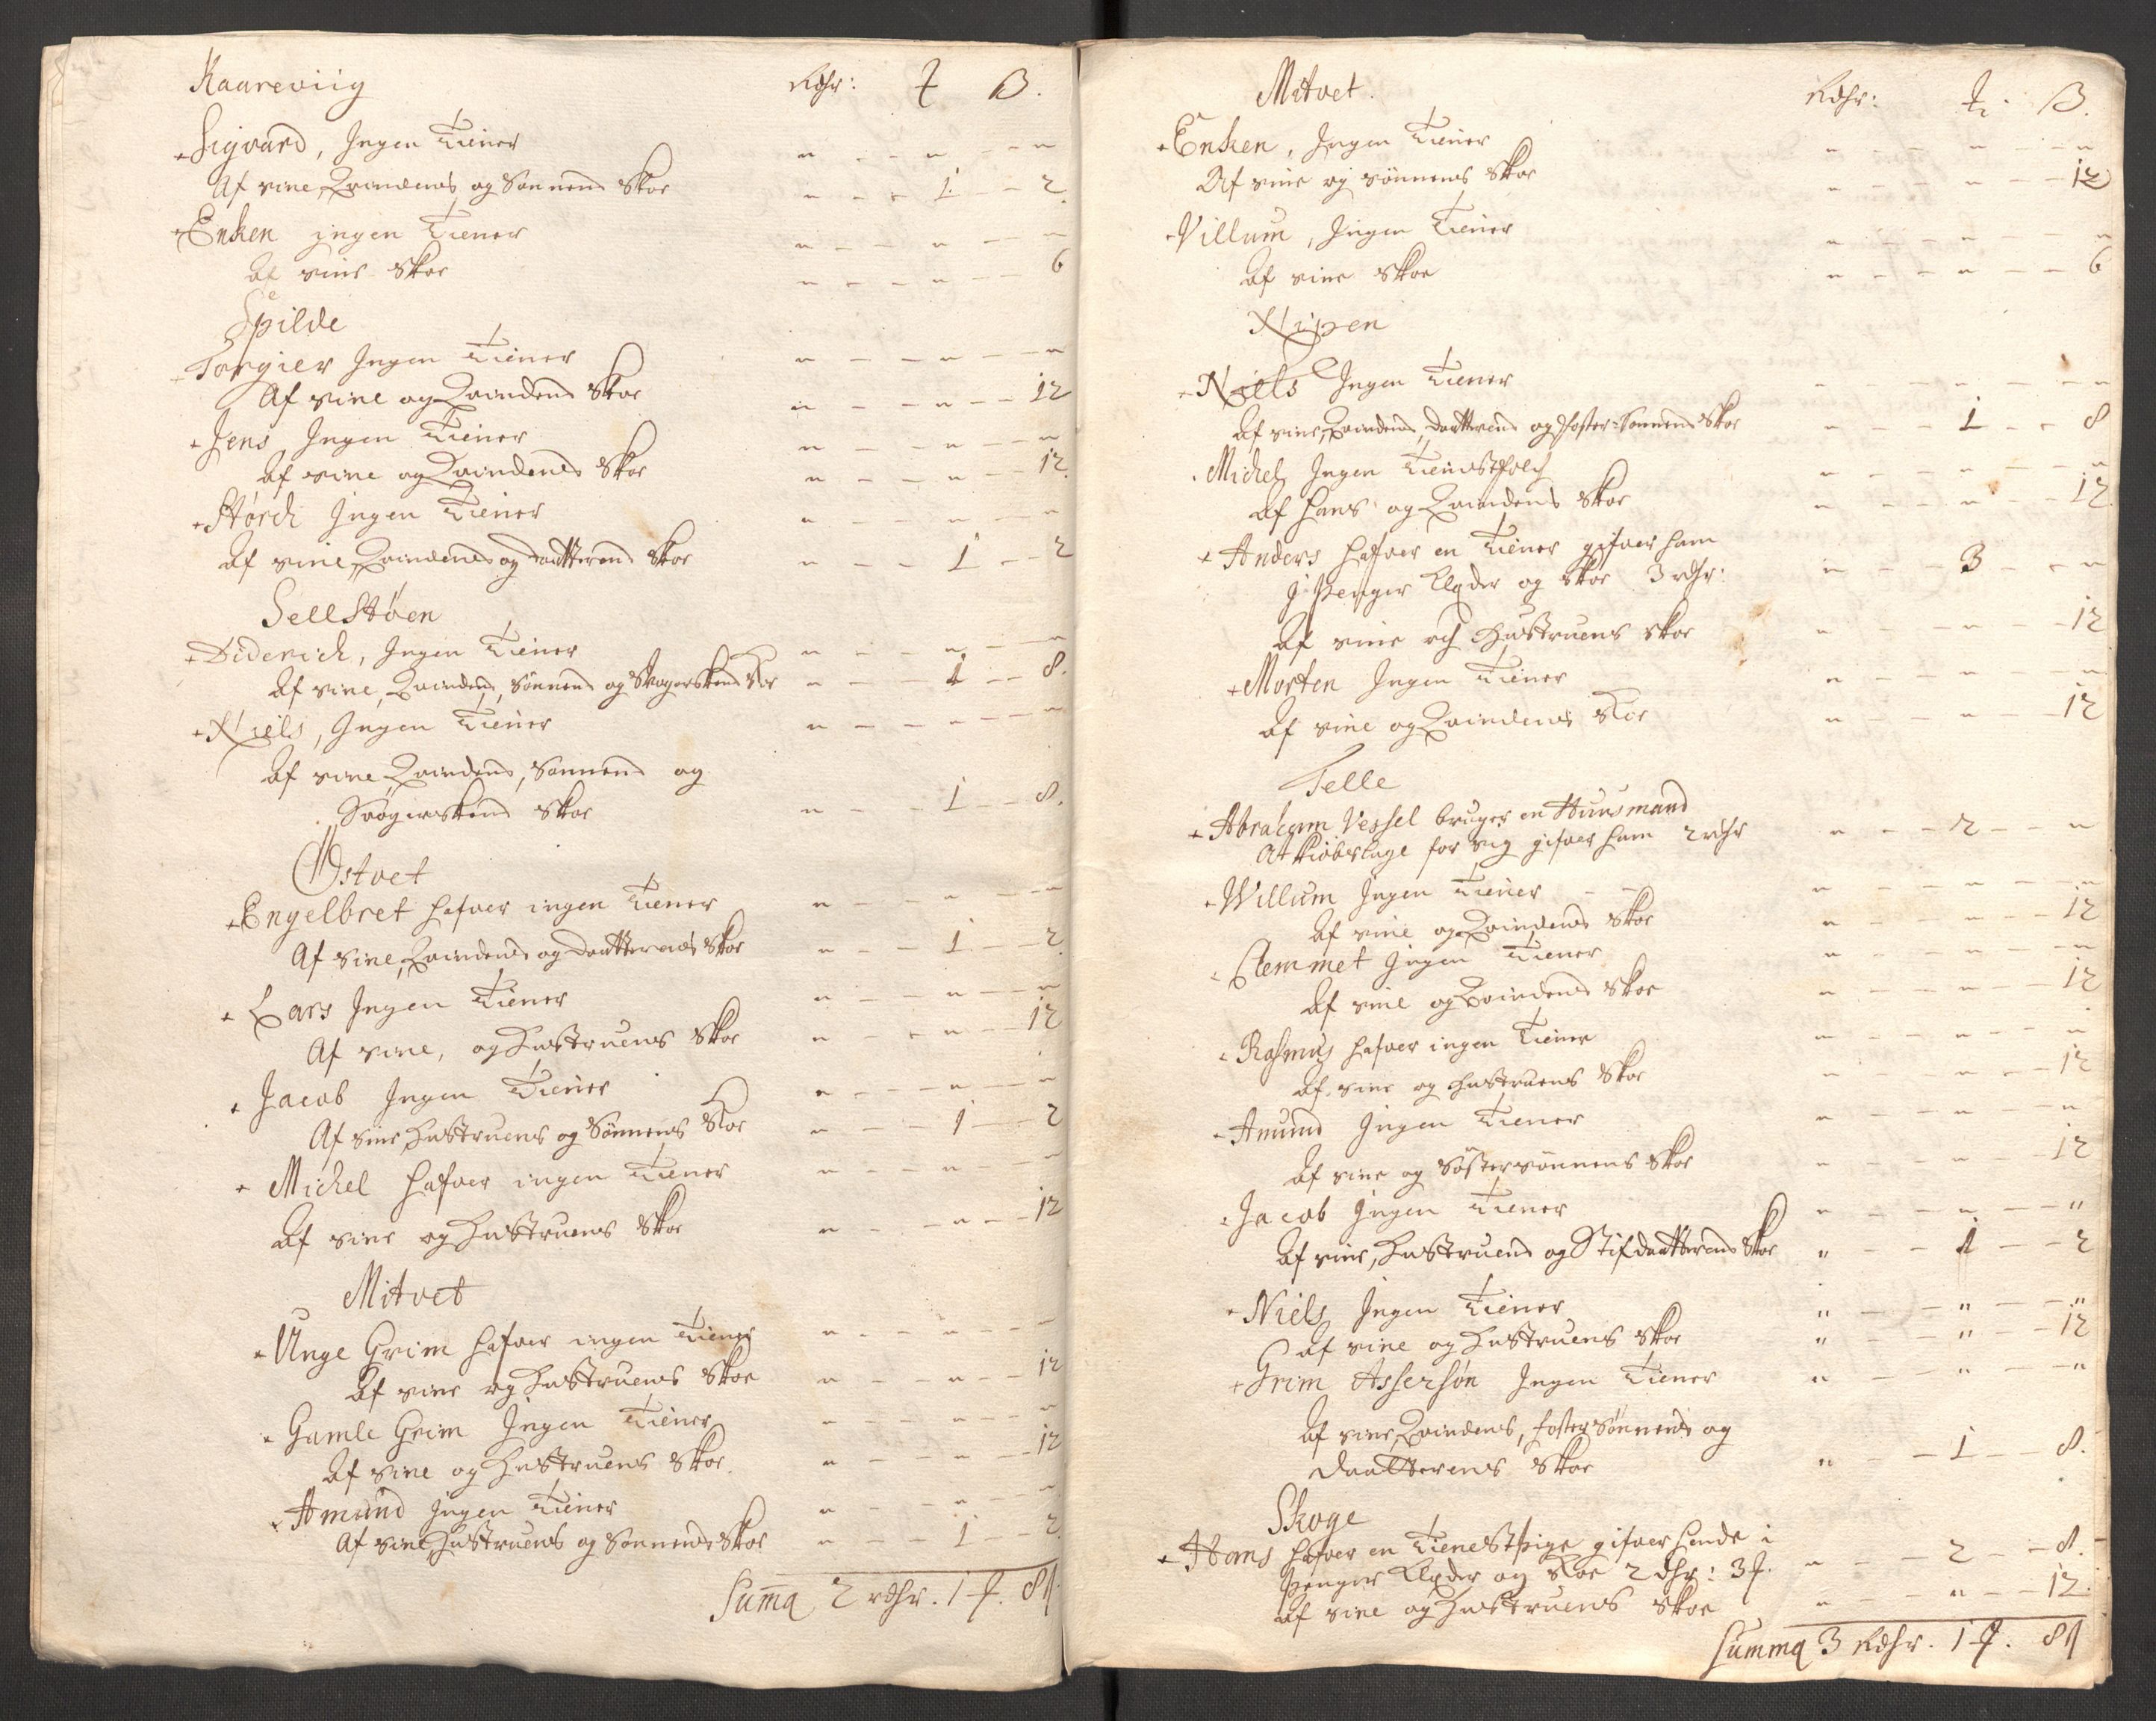 Kaareviig Rdhr: ƒ β.
Sigvard, Ingen Tiener " - - " - - "
Af sine, Qvindens og Sønnens Skoe " - - 1 - - 2.
Enken ingen Tiener " - - " - - "
Af sine Skoe " - - " - - 6
Spilde
Torgier Ingen Tiener " - - " - - "
Af sine og Qvindens Skoe " - - " - - 12
Jens, Ingen Tiener " - - " - - "
Af sine og Qvindens Skoe " - - " - - 12.
Størch Ingen Tiener " - - " - - "
Af sine, Qvindens og daatterens Skoe " - - 1 - - 2
Sellstøen
Diderich, Ingen Tiener " - - " - - "
Af sine, Qvindens, Sønnens og Svogerskens Skoe " - - 1 - - 8.
Niels, Ingen Tiener " - - " - - "
Af sine, Qvindens, Sønnens og
Svogerskens Skoe " - - 1 - - 8.
Østvet
Engelbret hafver ingen Tiener " - - " - - "
Af sine, Qvindens og Daatterens Skoe " - - 1 - - 2
Lars Ingen Tiener " - - " - - "
Af sine, og Hustruens Skoe " - - " - - 12
Jacob Ingen Tiener " - - " - - "
Af sine Hustruens og Sønnens Skoe " - - 1 - - 2
Michel hafver ingen Tiener " - - " - - "
Af sine og Hustruens Skoe " - - " - - 12
Mitvet
Unge Grim hafver ingen Tiener " - - " - - "
Af sine og Hustruens Skoe " - - " - - 12
Gamle Grim Ingen Tiener " - - " - - "
Af sine og Hustruens Skoe. " - - " - - 12
Amund Ingen Tiener " - - " - - "
Af sine Hustruens og Sønnens Skoe " - - 1 - - 2.
Summa 2 rdhr. 1 ƒ. 8β
Mitvet. Rdhr: ƒ. β.
Enken, Ingen Tiener " - - " - - "
Af sine og sønnens Skoe " - - " - - 12
Villum, Ingen Tiener " - - " - - "
Af sine Skoe " - - " - - 6
Nipen
Niels Ingen Tiener " - - " - - "
Af sine, Qvindens, daatterens og foster-Sønnens Skoe " - - 1 - - 8
Michel Ingen Tienistfolch " - - " - - "
Af hans og Qvindens Skoe " - - " - - 12
Anders hafver en Tiener gifver ham
J Penger Klæder og Skoe 3 rdhr: " - - 3 - - "
Af sine og Hustruens Skoe " - - " - - 12
Morten Ingen Tiener " - - " - - "
Af sine og Qvindens Skoe " - - " - - 12
Telle
Abraham Vessel bruger en Huusmand
At kiøbslage for sig gifver ham 2 rdhr " - - 2 - - "
Willum Ingen Tiener " - - " - - "
Af sine og Qvindens Skoe " - - " - - 12
Clemmet Ingen Tiener " - - " - - "
Af sine og Qvindens Skoe " - - " - - 12
Rasmus hafver ingen Tiener " - - " - - "
Af sine og Hustruens Skoe " - - " - - 12
Amund Ingen Tiener " - - " - - "
Af sine og Søstersønnens Skoe " - - " - - 12
Jacob Ingen Tiener " - - " - - "
Af sine, Hustruens og Stifdaatterens Skoe " - - 1 - - 2
Niels Ingen Tiener " - - " - - "
Af sine og Hustruens Skoe " - - " - - 12
Grim Assersøn Ingen Tiener " - - " - - "
Af sine, Qvindens, foster Sønnens og
daatterens Skoe " - - 1 - - 8.
Skoge
Hans hafver en Tienestpige gifver hende i
Penger Klæder og Skoe 2 dhr: 3 ƒ. " - - 2 - - 8.
Af sine og Hustruens Skoe " - - " - - 12.
Summa 3 Rdhr. 1 ƒ. 8β